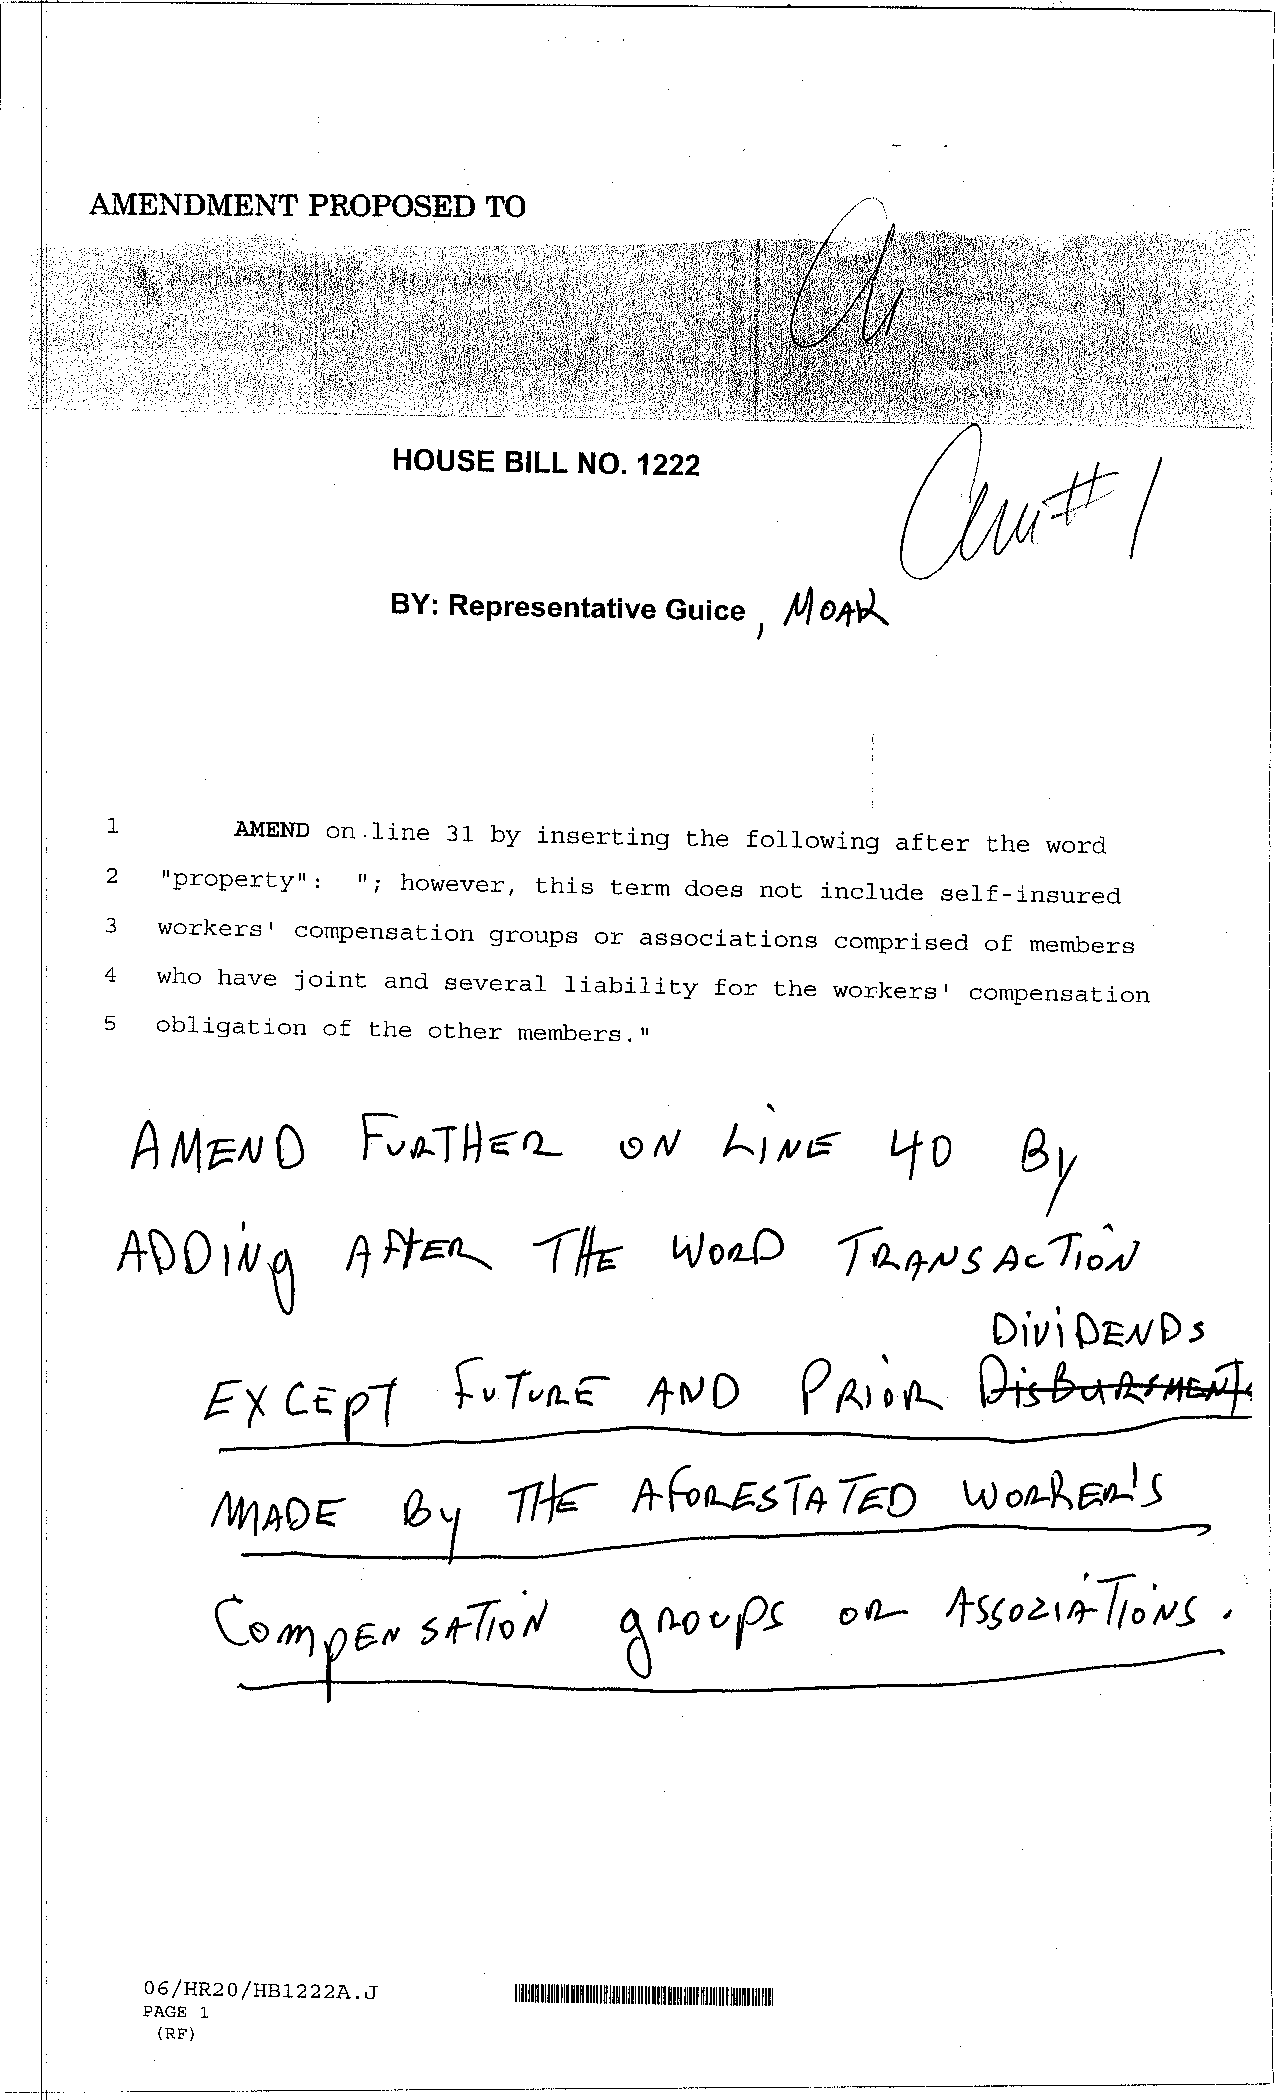 AMENDMENT PROPOSED TO
HOUSE BILL NO. 1222
Am # 1
BY: Representative Guice , MOAK
1 AMEND on line 31 by inserting the following after the word
2 "property": "; however, this term does not include self-insured
3 workers' compensation groups or associations comprised of members
4 who have joint and several liability for the workers' compensation
5 obligation of the other members."
AMEND FURTHER ON LINE 40 By
ADDINg AFTER THE WORD TRANSACTION
DiViDENDs
EXCEpT FuTuRE AND PRIOR DisBURSMENTs
MADE By THE AFORESTATED WORKER'S
COMpENSATION gROUpS OR ASSOZIATIONS.
06/HR20/HB1222A.J
PAGE 1
(RF)